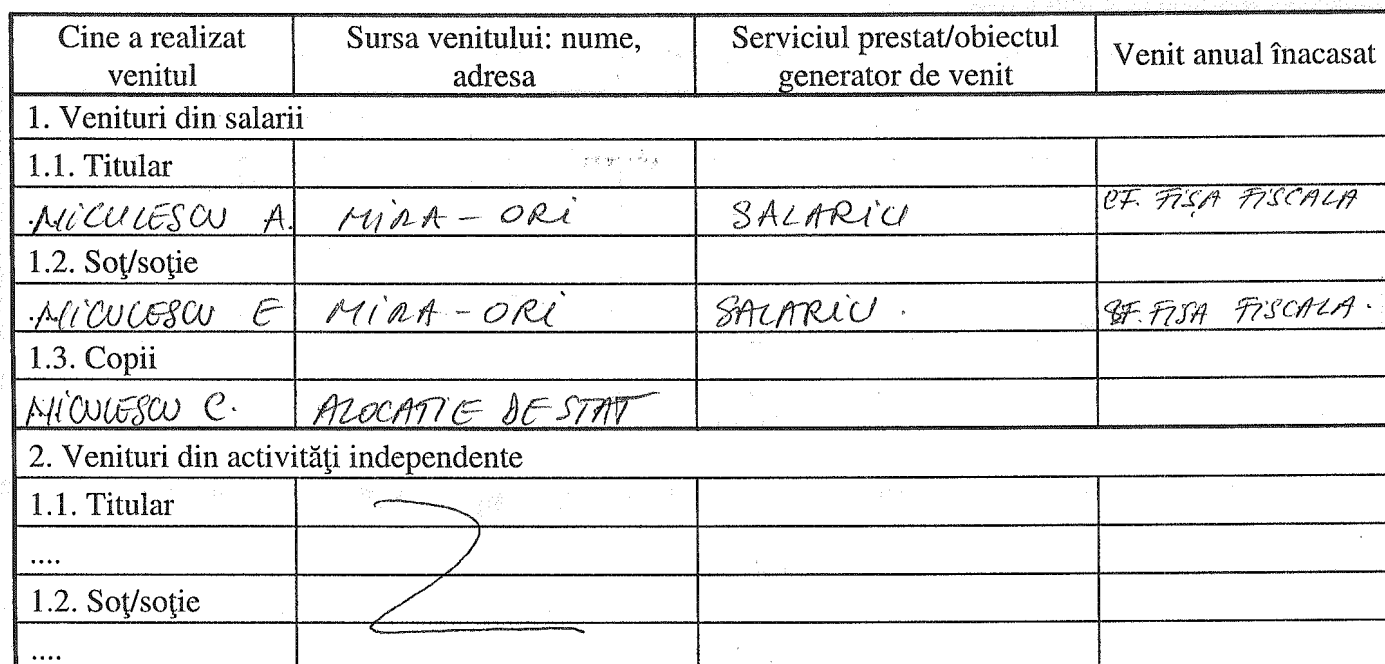 Cine a realizat venitul
Sursa venitului: nume, adresa
Serviciul prestat/obiectul generator de venit
Venit anual înacasat
1. Venituri din salarii
1.1. Titular
MICULESCU A. MIRA - ORI SALARIU CF. FIȘA FISCALA
1.2. Soţ/soţie
MICULESCU E MIRA - ORI SALARIU. CF. FISA FISCALA.
1.3. Copii
MICULESCU C. ALOCATIE DE STAT
2. Venituri din activităţi independente
1.1. Titular
....
1.2. Soţ/soţie
....